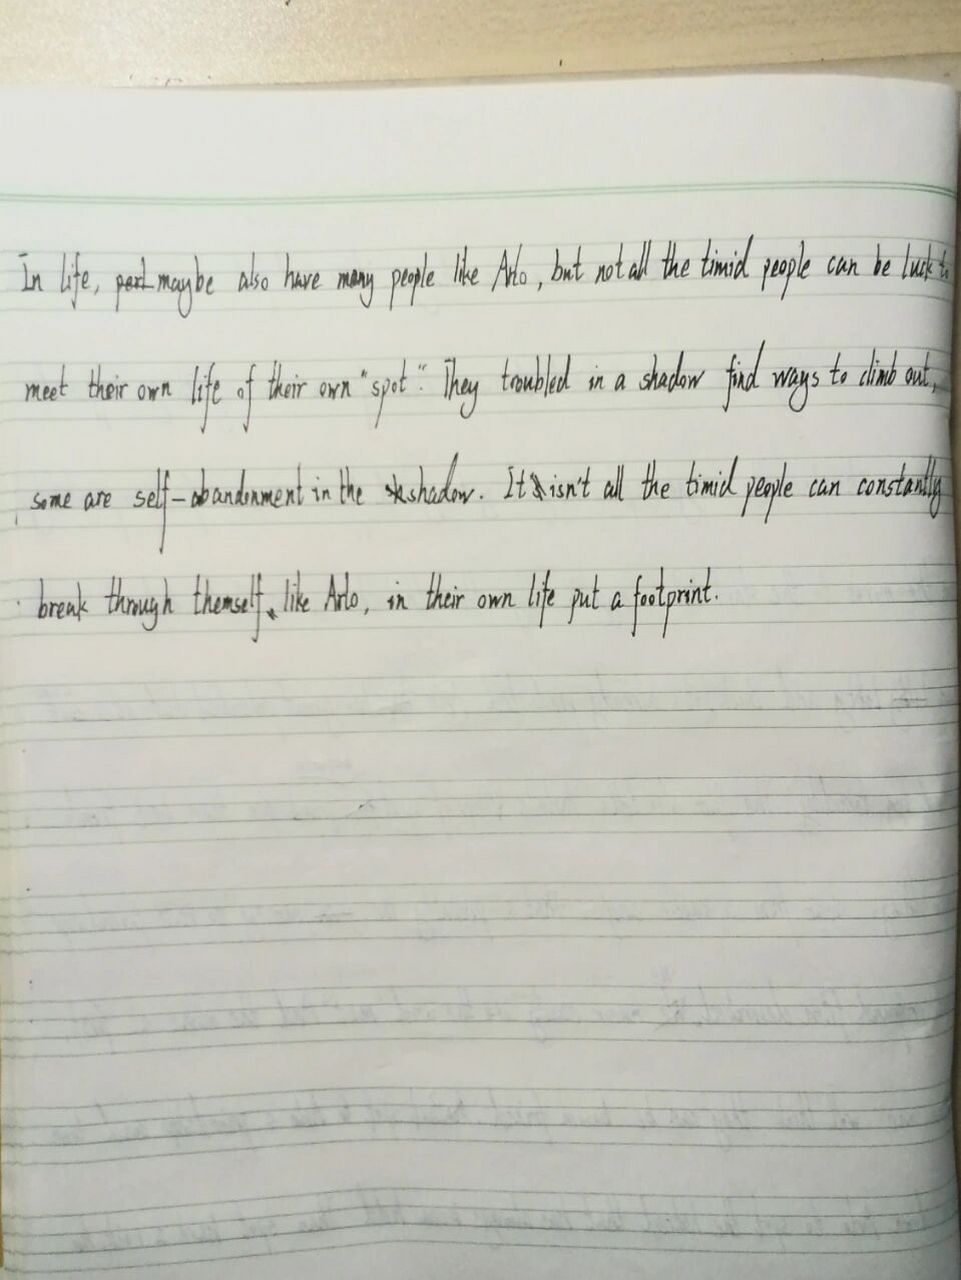 In life, maybe also have many people like Arlo, but not all the timid people can be luck to
meet their own life of their own "spot". They troubled in a shadow find ways to climb out,
some are self-abandonment in the shadow. It isn't all the timid people can constantly
break through themself, like Arlo, in their own life put a footprint.